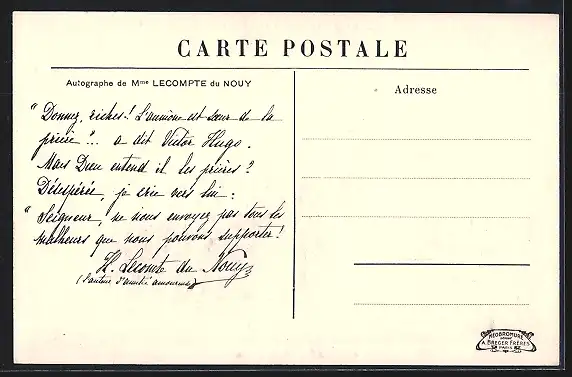 CARTE POSTALE
Autographe de Mme LECOMPTE du NOUY
Adresse
"Donnez, riches! L'aumône est sœur de la
prière"... a dit Victor Hugo.
Mais Dieu entend il les prières?
Désespérée, je crie vers lui:
"Seigneur, ne nous envoyez pas tous les
malheurs que nous pouvons supporter!
H. Lecomte du Nouy
(l'auteur d'amitié amoureuse)
NEOBROMURE
A. BREGER FRÈRES
PARIS